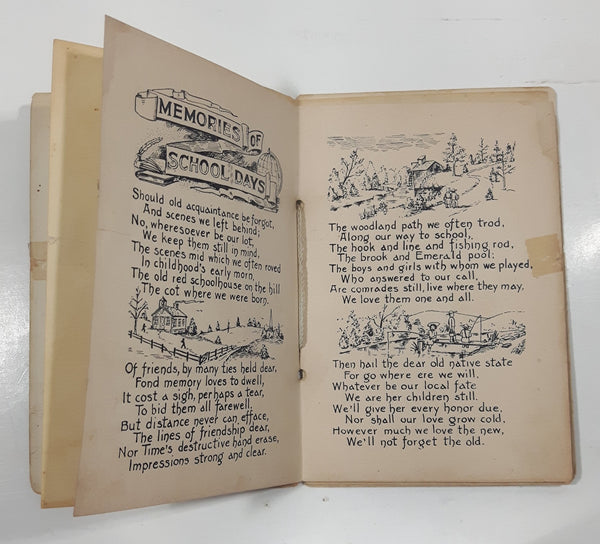 MEMORIES OF
SCHOOL DAYS
Should old acquaintance be forgot,
And scenes we left behind;
No, wheresoever be our lot,
We keep them still in mind,
The scenes mid which we often roved
In childhood's early morn,
The old red schoolhouse on the hill
The cot where we were born.
Of friends, by many ties held dear,
Fond memory loves to dwell,
It cost a sigh, perhaps a tear,
To bid them all farewell,
But distance never can efface,
The lines of friendship dear,
Nor Time's destructive hand erase,
Impressions strong and clear.
The woodland path we often trod,
Along our way to school,
The hook and line and fishing rod,
The brook and Emerald pool;
The boys and girls with whom we played,
Who answered to our call,
Are comrades still, live where they may,
We love them one and all.
Then hail the dear old native state
For go where ere we will,
Whatever be our local fate
We are her children still.
We'll give her every honor due,
Nor shall our love grow cold,
However much we love the new,
We'll not forget the old.